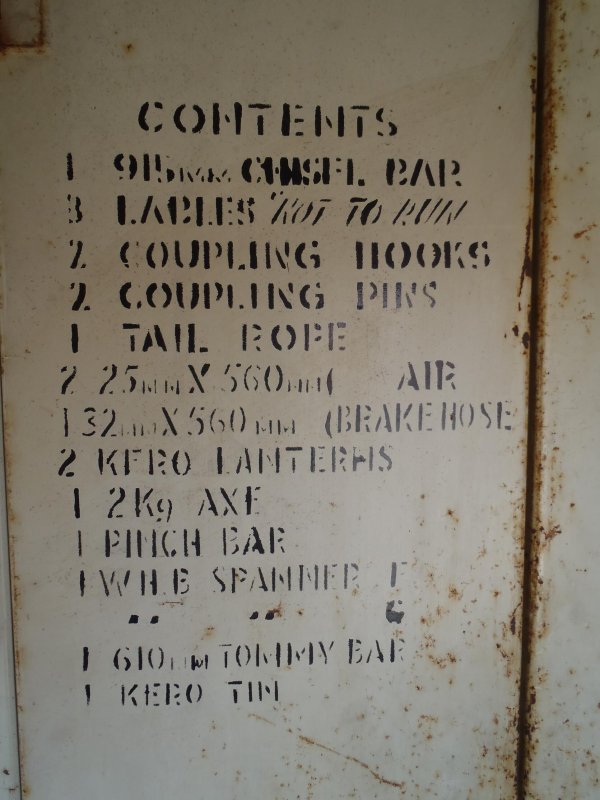 CONTENTS
1 915mm CHISEL BAR
3 LABLES "NOT TO RUN
2 COUPLING HOOKS
2 COUPLING PINS
1 TAIL ROPE
2 25mm X 560mm ( AIR
1 32mm X 560mm (BRAKE HOSE
2 KERO LANTERNS
1 2Kg AXE
1 PINCH BAR
1 W.H.B SPANNER F
" " G
1 610mm TOMMY BAR
1 KERO TIN